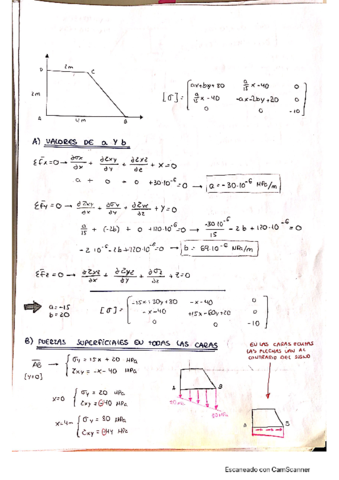 2m
D
C
2m
A
B
[σ] = ax+by+80   a/15 x-40   0
a/15 x-40   -ax-2by+20   0
0   0   -10
A) VALORES DE a Y b
ΣFx=0 → ∂σx/∂x + ∂τxy/∂y + ∂τxz/∂z + X=0
a + 0 + 0 +30·10⁻⁶=0 → a=-30·10⁻⁶ MPa/m
ΣFy=0 → ∂τxy/∂x + ∂σy/∂y + ∂τyz/∂z + Y=0
a/15 + (-2b) + 0 +120·10⁻⁶=0 → -30·10⁻⁶/15 - 2b +120·10⁻⁶=0
-2·10⁻⁶-2b+120·10⁻⁶=0 → MPa/m
ΣFz=0 → ∂τxz/∂x + ∂τyz/∂y + ∂σz/∂z + Z=0
a=-15
b=20
[σ]= -15x+20y+80   -x-40   0
-x-40   +15x-40y+20   0
0   0   -10
B) FUERZAS SUPERFICIALES EN TODAS LAS CARAS
AB → σy=15x+20 MPa
[y=0] τxy=-x-40 MPa
x=0 σy=20 MPa
τxy=-40 MPa
x=4m σy=80 MPa
τxy=-44 MPa
A
B
80MPa
EN LAS CARAS
LAS FLECHAS VAN AL
CONTRARIO DEL SIGNO
A
B
Escaneado con CamScanner